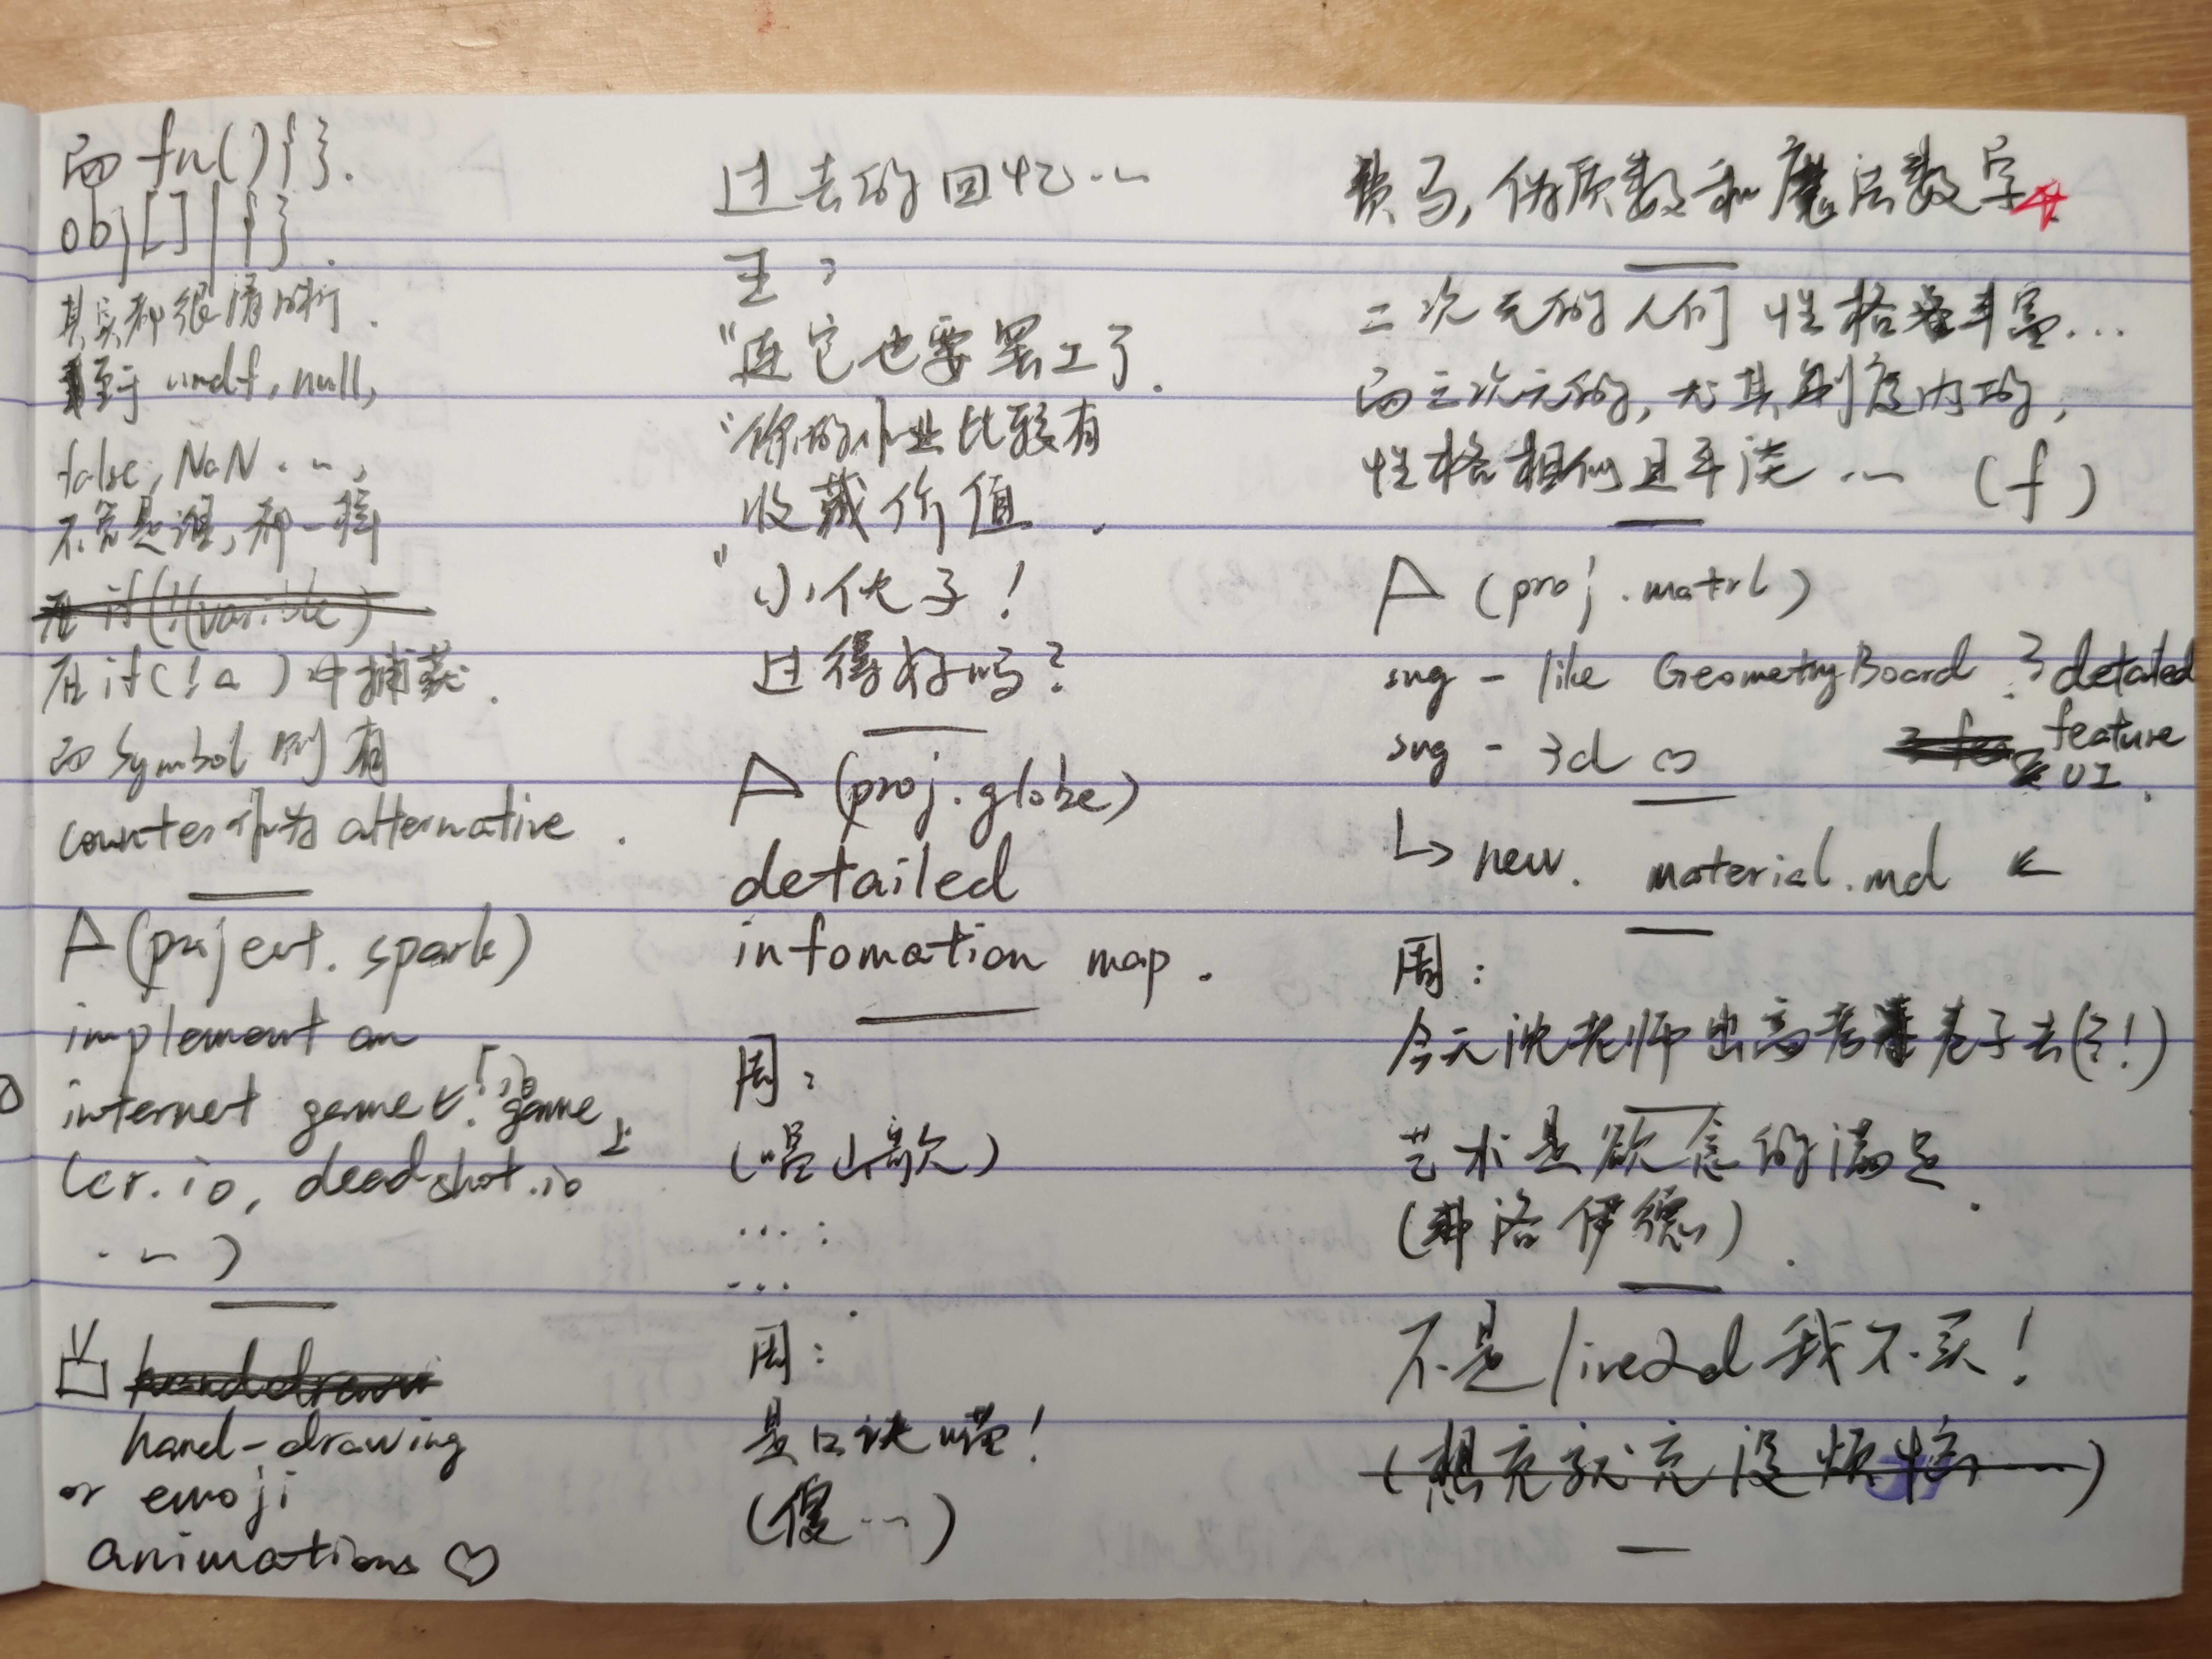 而 fn(){}.
obj[] | {}.
其实都很清晰.
至于 undf, null,
false, NaN ...,
不管是谁, 都一样
在 if(!(varible)
在 if(!a)中捕获.
而 Symbol 则有
counter作为 alternative.
A(project. spark)
implement an
internet game.「io game」
(cr.io, deadshot.io
...)
hand drawn
hand-drawing
or emoji
animations ♡
过去的回忆...
王:
"连它也要罢工了.
"你的作业比较有
收藏价值.
"小伙子!
过得好吗?
A (proj.globe)
detailed
infomation map.
周:
(唱山歌)
...:
...
周:
是口诀嘿!
(傻...)
费马, 伪质数和魔法数字
二次元的人们 性格丰富...
而三次元的, 尤其制度内的,
性格相似且平淡... (f)
A (proj.matrl)
svg - like GeometryBoard. } detailed
svg - 3d feature
UI.
↳ new. material.md ←
周:
今天沈老师出高考卷子去(?!)
艺术是欲念的满足.
(弗洛伊德).
不是live2d我不买!
(想充就充没烦恼...)